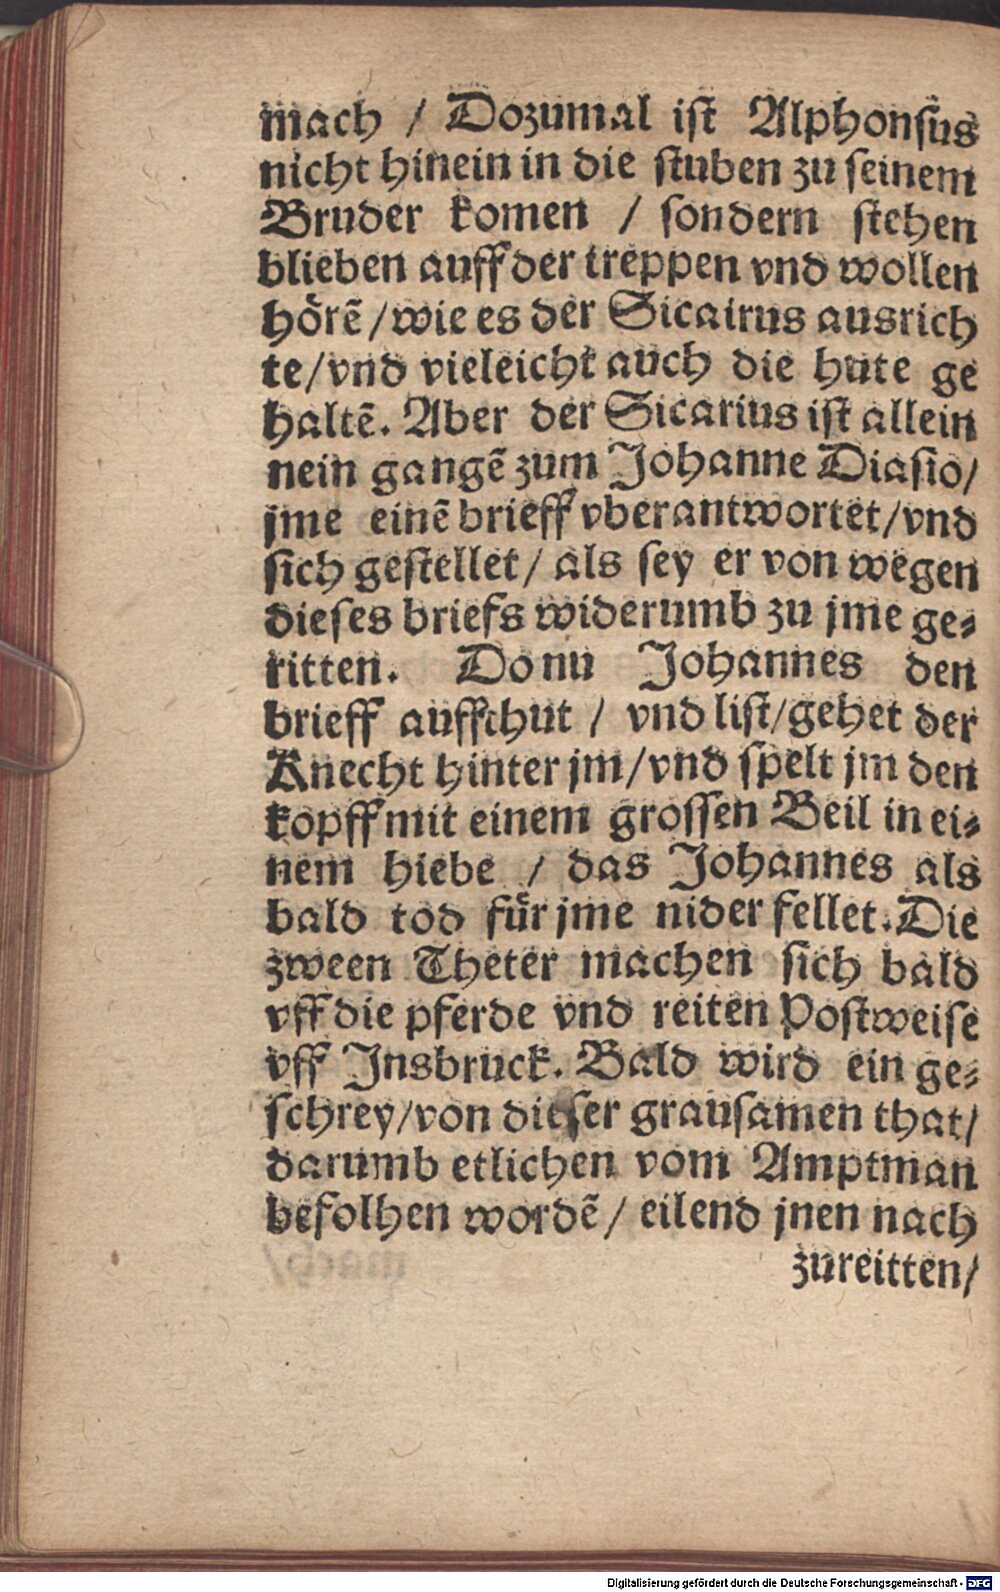 mach / Dozumal ist Alphonsus
nicht hinein in die stuben zu seinem
Bruder komen / sondern stehen
blieben auff der treppen vnd wollen
hoͤrẽ /wie es der Sicairus ausrich
te/vnd vieleicht auch die hute ge
haltẽ. Aber der Sicarius ist allein
nein gangẽ zum Johanne Diasio/
jme einẽ brieff vberantwortet/vnd
sich gestellet/ als sey er von wegen
dieses briefs widerumb zu jme ge⸗
ritten. Do nu Johannes den
brieff auffthut / vnd list/gehet der
Knecht hinter jm/vnd spelt jm den
kopff mit einem grossen Beil in ei⸗
nem hiebe / das Johannes als
bald tod fuͤr jme nider fellet. Die
zween Theter machen sich bald
vff die pferde vnd reiten Postweise
vff Insbruck. Bald wird ein ge⸗
schrey/von dieser grausamen that/
darumb etlichen vom Amptman
befolhen wordẽ/ eilend jnen nach
zureitten/
Digitalisierung gefördert durch die Deutsche Forschungsgemeinschaft - DFG